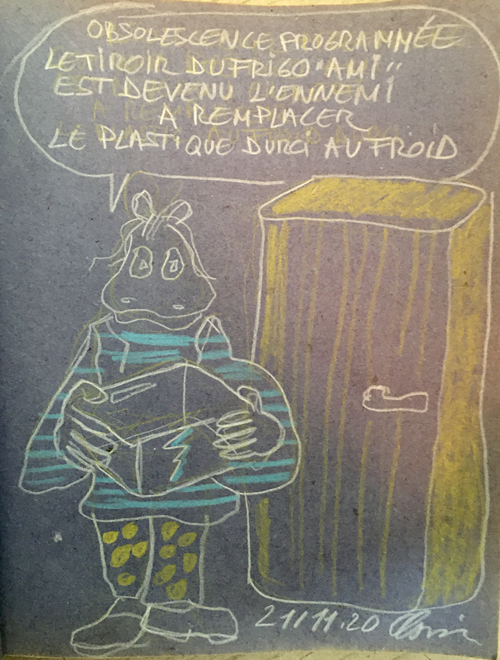 OBSOLESCENCE PROGRAMMÉE
LE TIROIR DU FRIGO "AMI"
EST DEVENU L'ENNEMI
A REMPLACER
LE PLASTIQUE DURCI AU FROID
21/11.20